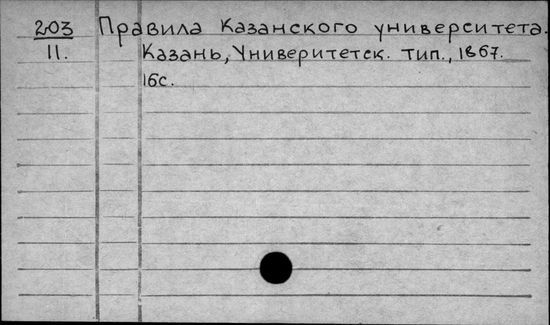 203 Правила Казанского университета.
11. Казань, Универитетск. тип., 1867.
16с.